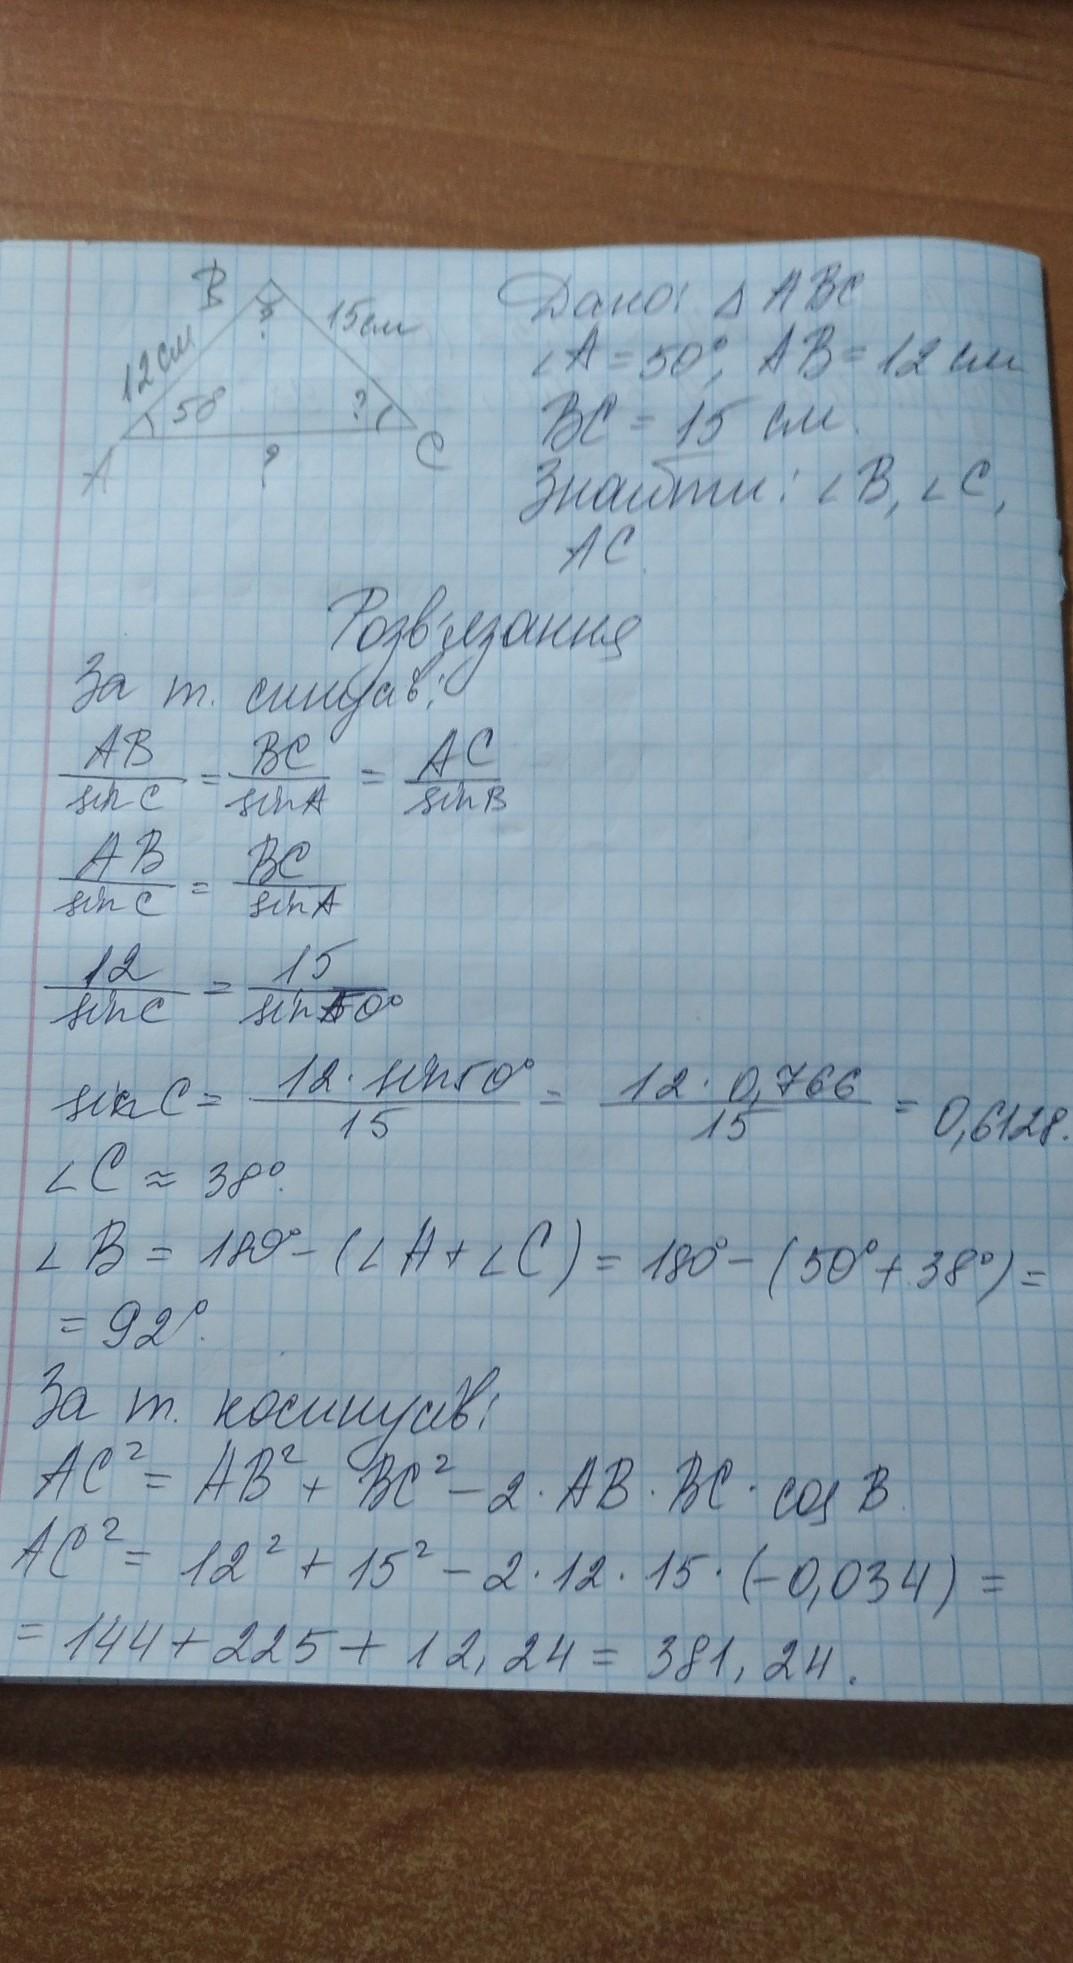 B
?
15см
12см
50°
?
A
?
C
Дано: △ ABC
∠A = 50°, AB = 12 см
BC = 15 см.
Знайти: ∠B, ∠C,
AC.
Розв'язання
За т. синусів:
AB/sin C = BC/sin A = AC/sin B
AB/sin C = BC/sin A
12/sin C = 15/sin 50°
sin C = 12 · sin 50°/15 = 12 · 0,766/15 = 0,6128.
∠C ≈ 38°.
∠B = 180° - (∠A + ∠C) = 180° - (50° + 38°) =
= 92°.
За т. косинусів:
AC² = AB² + BC² - 2 · AB · BC · cos B.
AC² = 12² + 15² - 2 · 12 · 15 · (-0,034) =
= 144 + 225 + 12,24 = 381,24.